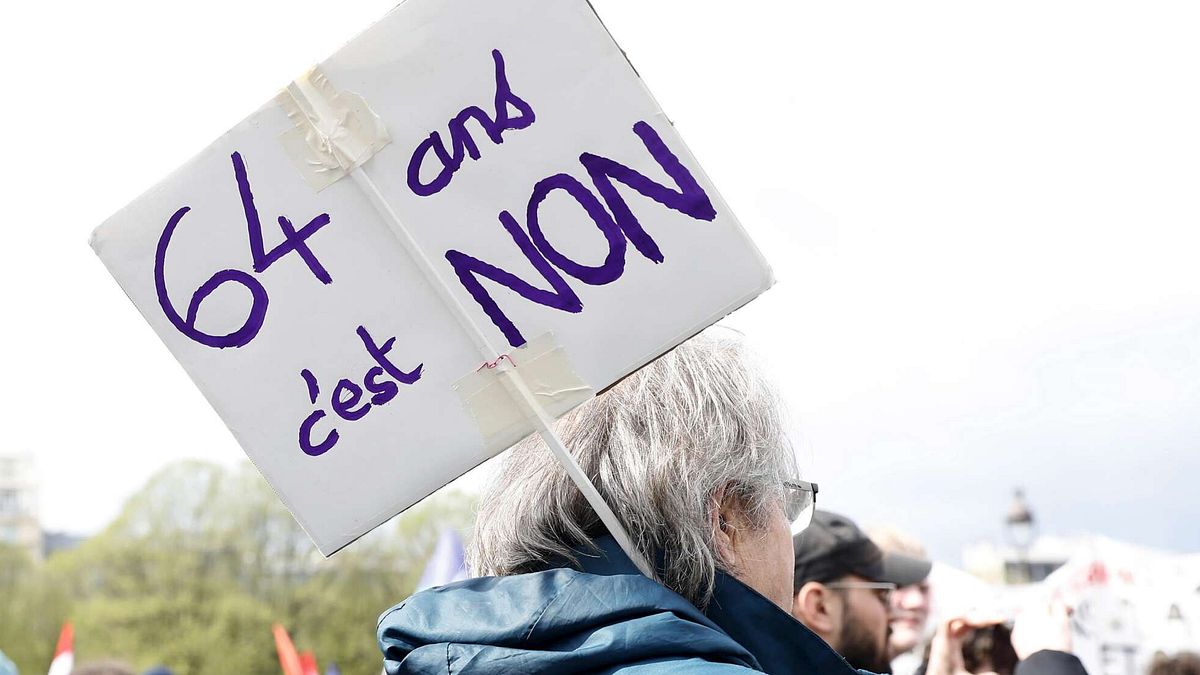 64 ans
c'est NON